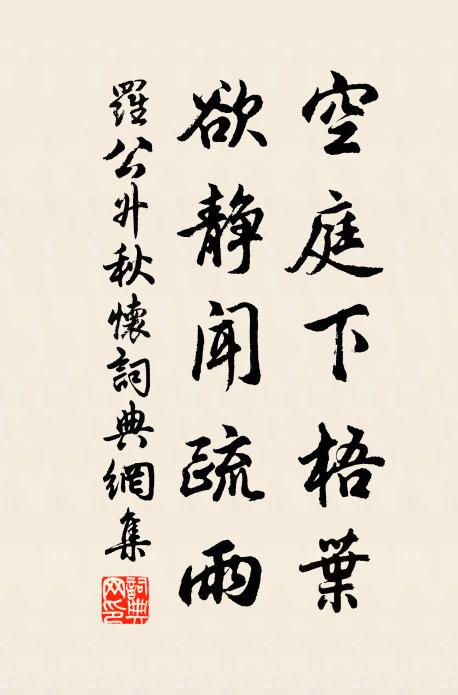 空庭下梧葉
欲静聞疏雨
羅公升秋懷詞典網集
詞典网印